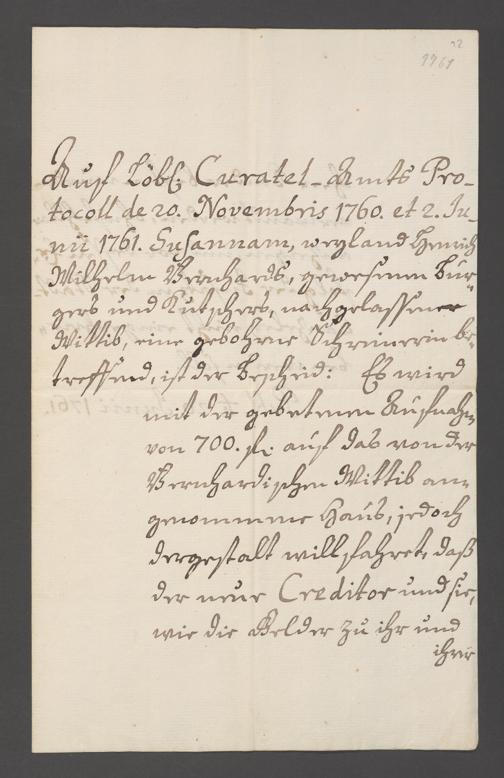 72
1761
Auf Löbl. Curatel-Amts Pro-
tocoll de 20. Novembris 1760. et 2. Ju-
nii 1761. Susannam, weyland Henrich
Wilhelm Bernhards, gewesenen Bür-
gers und Kutschers, nachgelassener
Wittib, eine gebohrne Schreinerin be-
treffend, ist der Bescheid: Es wird
mit der gebetenen Aufnahm
von 700. fl. auf das von der
Bernhardischen Wittib an-
genommene Haus, jedoch
dergestalt willfahret, daß
der neue Creditor und sie,
wie die Gelder zu ihr und
ihrer